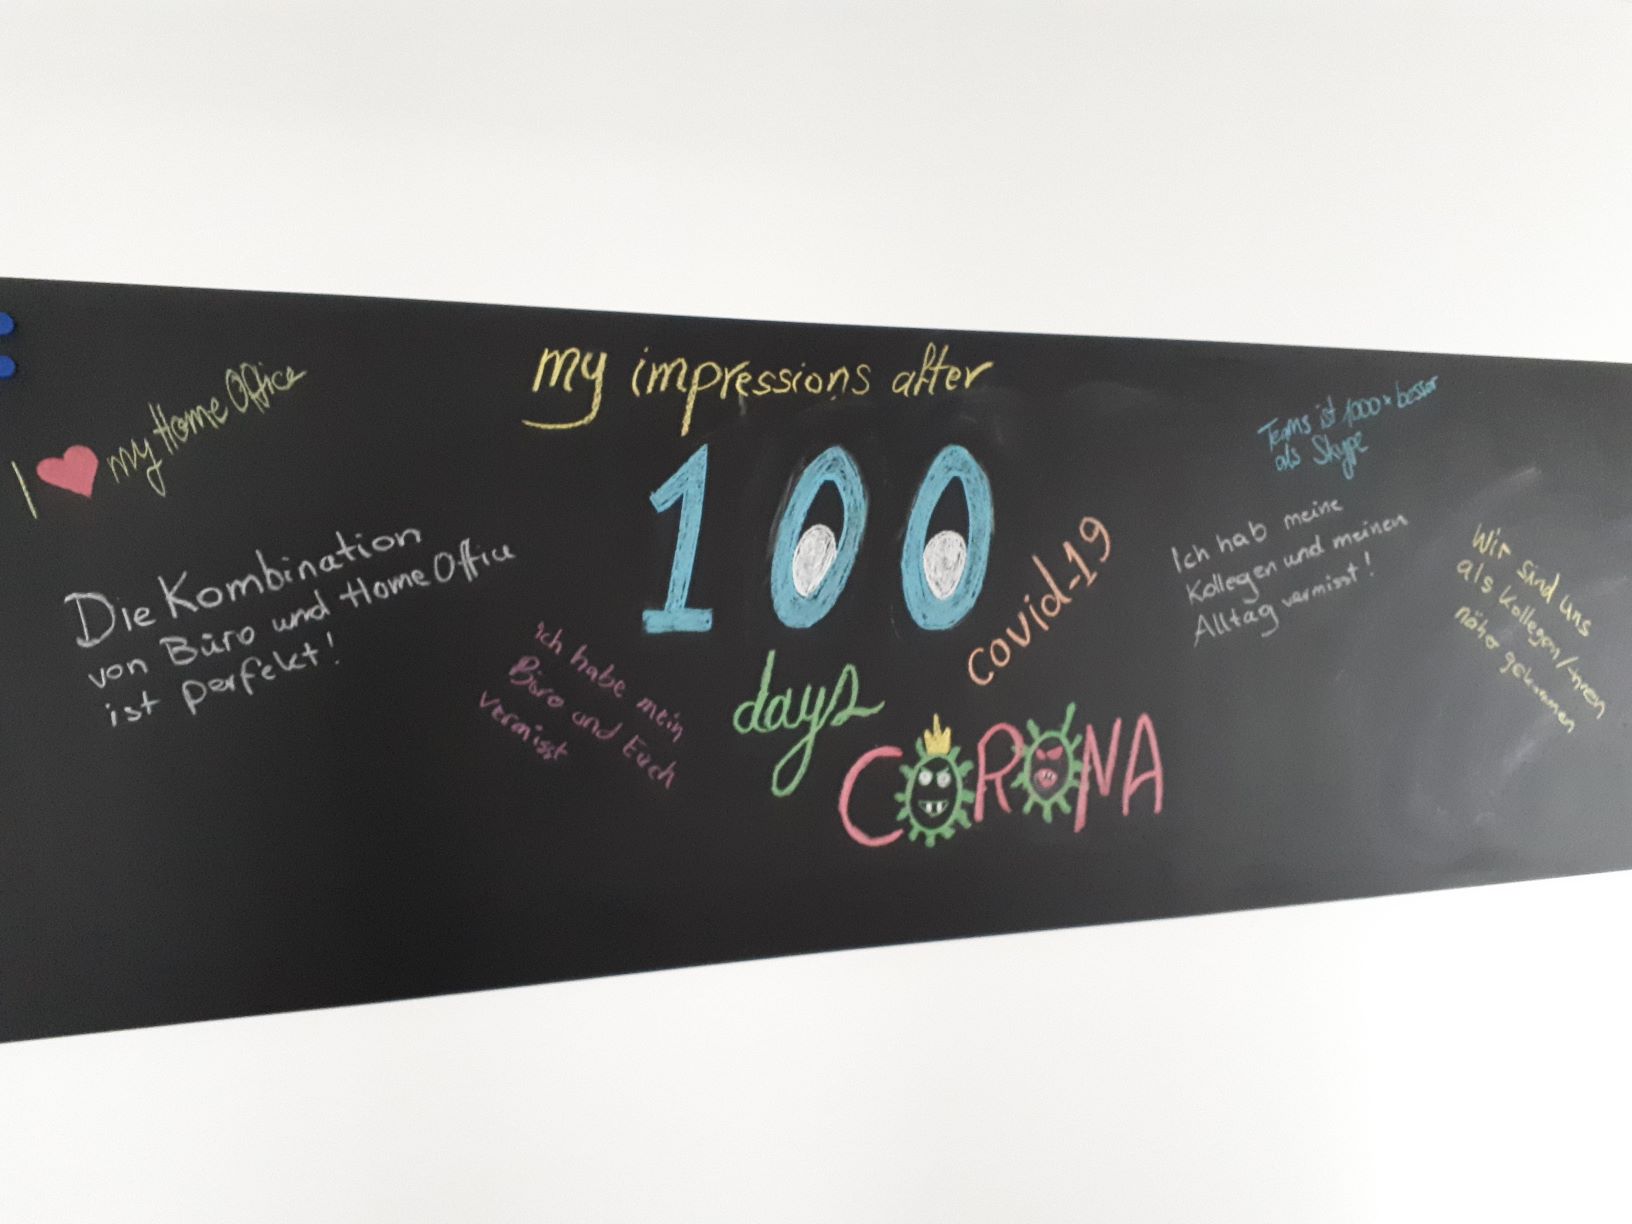 my impressions after
100
days
covid-19
CORONA
I ❤ my Home Office
Die Kombination
von Büro und Home Office
ist perfekt!
Ich habe mein
Büro und Euch
vermisst
Teams ist 1000x besser
als Skype
Ich hab meine
Kollegen und meinen
Alltag vermisst!
Wir sind uns
als Kollegen/innen
näher gekommen